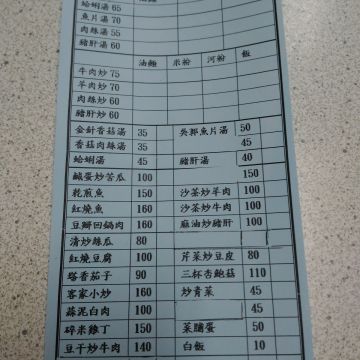 蛤蜊湯 65
魚片湯 70
肉絲湯 55
豬肝湯 60
油麵 米粉 河粉 飯
牛肉炒 75
羊肉炒 70
肉絲炒 60
豬肝炒 60
金針香菇湯 35 吳郭魚片湯 50
香菇肉絲湯 35 45
蛤蜊湯 45 豬肝湯 40
鹹蛋炒苦瓜 100 150
乾煎魚 150 沙茶炒羊肉 100
紅燒魚 160 沙茶炒牛肉 100
豆瓣回鍋肉 160 麻油炒豬肝 100
清炒絲瓜 80
紅燒豆腐 100 芹菜炒豆皮 80
塔香茄子 90 三杯杏鮑菇 110
客家小炒 160 炒青菜 45
蒜泥白肉 100 45
碎米雞丁 150 菜脯蛋 50
豆干炒牛肉 140 白飯 10